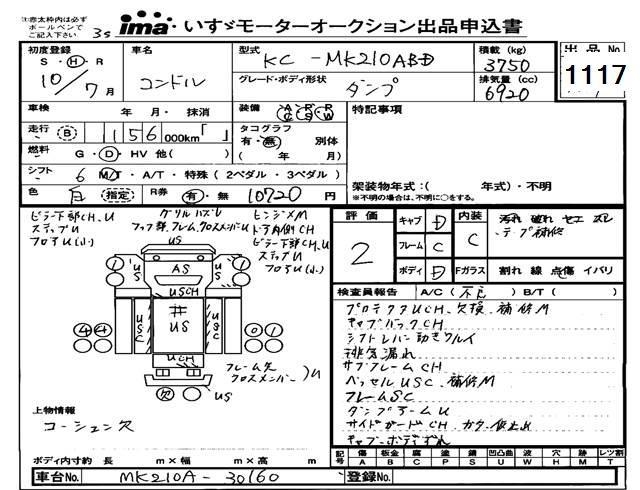 ※赤太枠内は必ず
ボールペンで
ご記入下さい
3S
ima いすゞモーターオークション出品申込書
初度登録
S・H・R
10/7月
車名
コンドル
型式
KC-MK210ABD
グレード・ボディ形状
ダンプ
積載 (kg)
3750
排気量 (cc)
6920
出品No
1117
車検 年 月・抹消
走行 B 156 000km「 」
燃料 G・D・HV 他( )
シフト 6 M/T・A/T・特殊(2ペダル・3ペダル)
色 白 指定 R券 有・無 10720 円
装備
タコグラフ
有・無 別体
( 年 月)
特記事項
架装物年式:( 年式)・不明
※不明の場合は、不明に○をする。
ピラー下部CH、U
ステップU
フロアU(小)
グリルハズレ
フック部、フレーム、クロスメンバーU
ヒンジXM
ドア内側CH
ピラー下部CH、U
ステップU
フロアU(小)
US
AS
US
US
USCH
井
US
USC
USC
UCH
US
1
1
4 4
0 1
欠
フレーム欠
クロスメンバー)U
上物情報
コーシェン欠
ボディ内寸約 長 m×幅 m×高 m
車台No. MK210A-30160
評価
2
キャブ D
フレーム C
ボディ D
内装 C
Fガラス
汚れ 破れ セエ ズレ
テープ補修
割れ 線 点傷 イバリ
検査員報告 A/C(不良) B/T( )
プロテクタUCH、欠損、補修M
キャブバックCH
シフトレバー動きワルイ
排気漏れ
サブフレームCH
ベッセルUSC、補修M
フレームSC
ダンプアームU
サイドガードCH、ガタ、仮止め
キャブ、ボディずれ
記号 傷 板金 腐 塗 錆 凹凸曲 波 穴 跡 レツ割
A B C P S U W H M T
登録No.